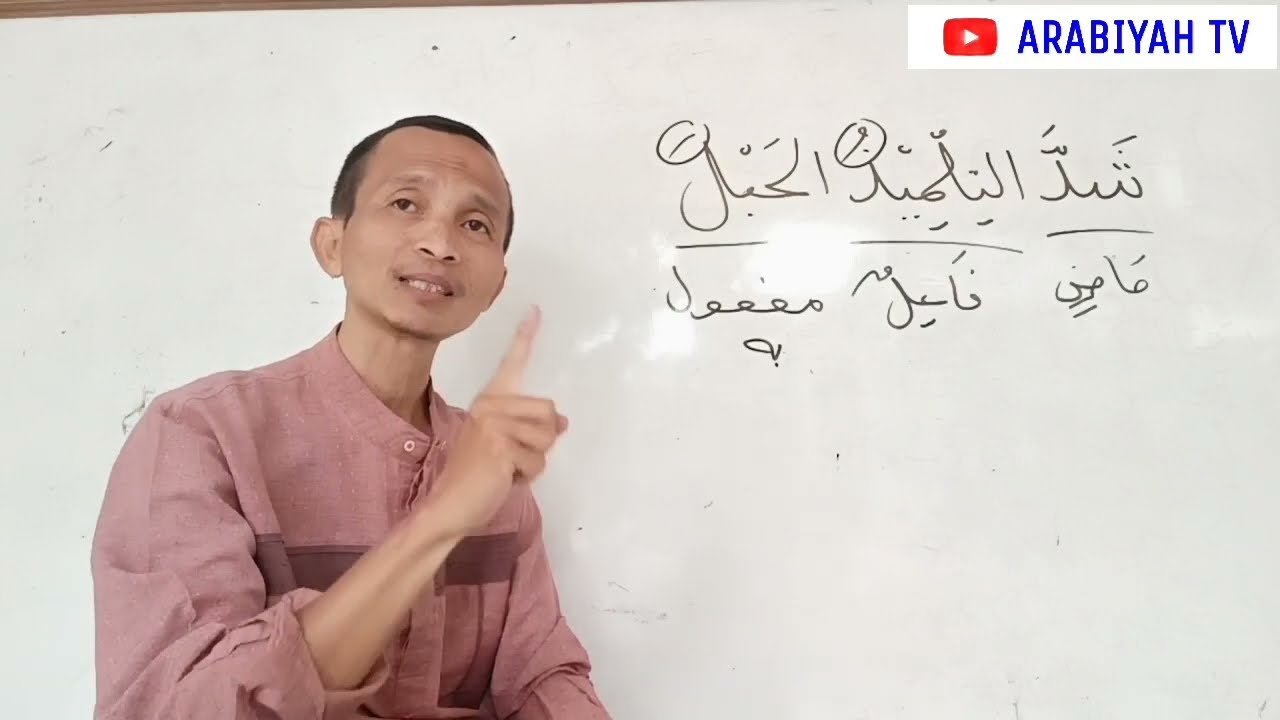 ARABIYAH TV
شَدَّ التِلّمِيْذُ الحَبْلَ
مَاضِي فَاعِلٌ مفعول
به